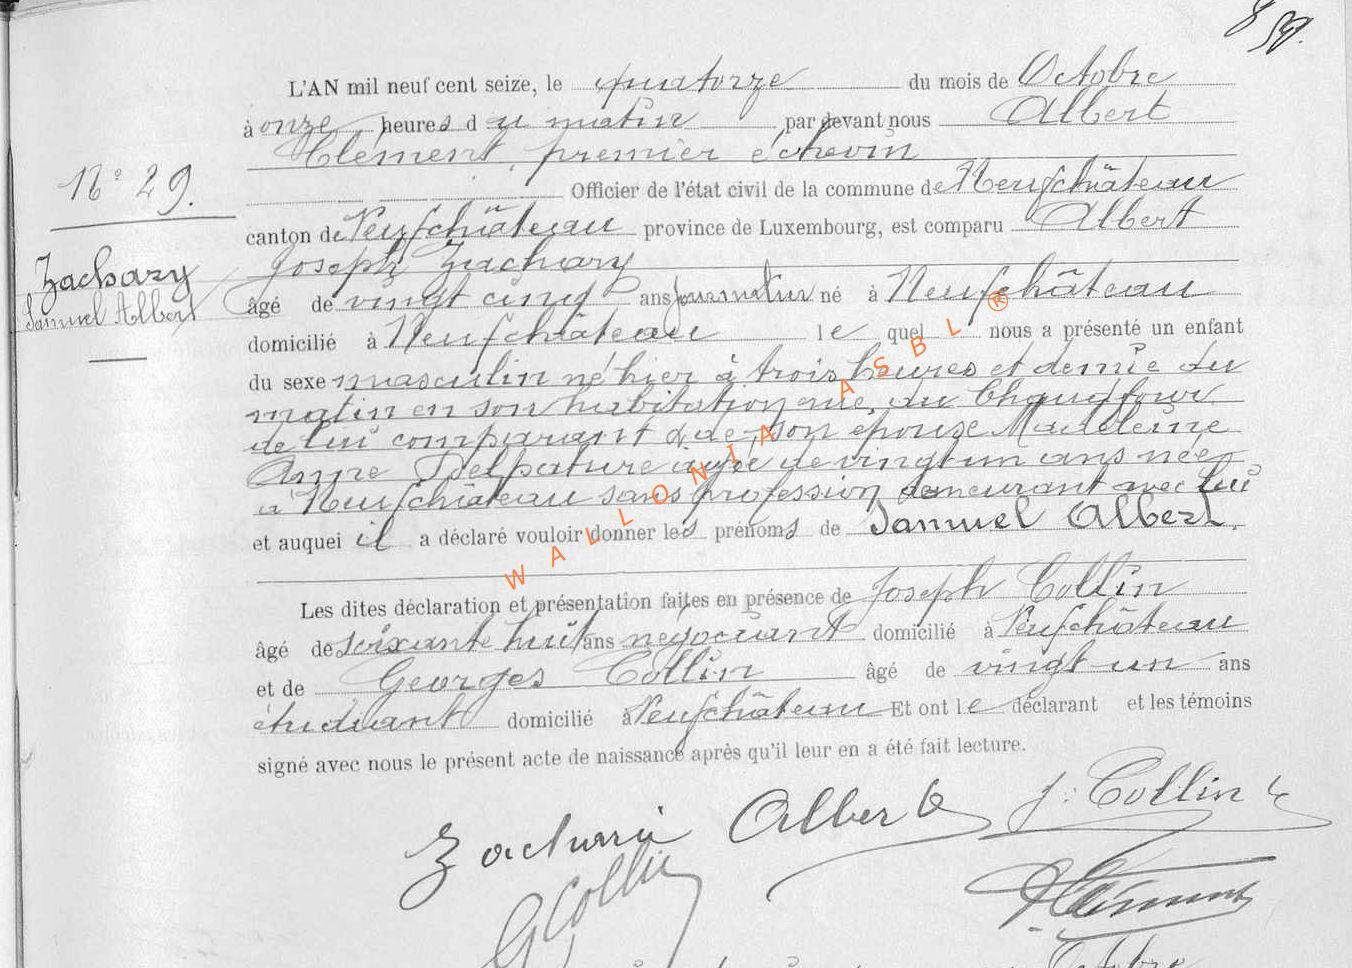 L'AN mil neuf cent seize, le quatorze du mois de Octobre
à onze heures du matin par devant nous Albert
Clément, premier échevin
Officier de l'état civil de la commune de Neufchâteau
N° 29.
canton de Neufchâteau province de Luxembourg, est comparu Albert
Joseph Zachary
Zachary
Samuel Albert
âgé de vingt cinq ans journalier né à Neufchâteau
domicilié à Neufchâteau lequel nous a présenté un enfant
du sexe masculin né hier à trois heures et demie du
matin en son habitation rue du Chaufour
de lui comparant & de son épouze Madeleine
Anne Delpature âgée de vingt un ans née
à Neufchâteau sans profession demeurant avec lui
et auquel il a déclaré vouloir donner les prénoms de Samuel Albert.
WALLONIA ASBL ®
Les dites déclaration et présentation faites en présence de Joseph Collin
âgé de soixante huit ans négociant domicilié à Neufchâteau
et de Georges Collin âgé de vingt un ans
étudiant domicilié à Neufchâteau Et ont le déclarant et les témoins
signé avec nous le présent acte de naissance après qu'il leur en a été fait lecture.
Zacharri Albert J. Collin
G Collin
A Clément
Octobre